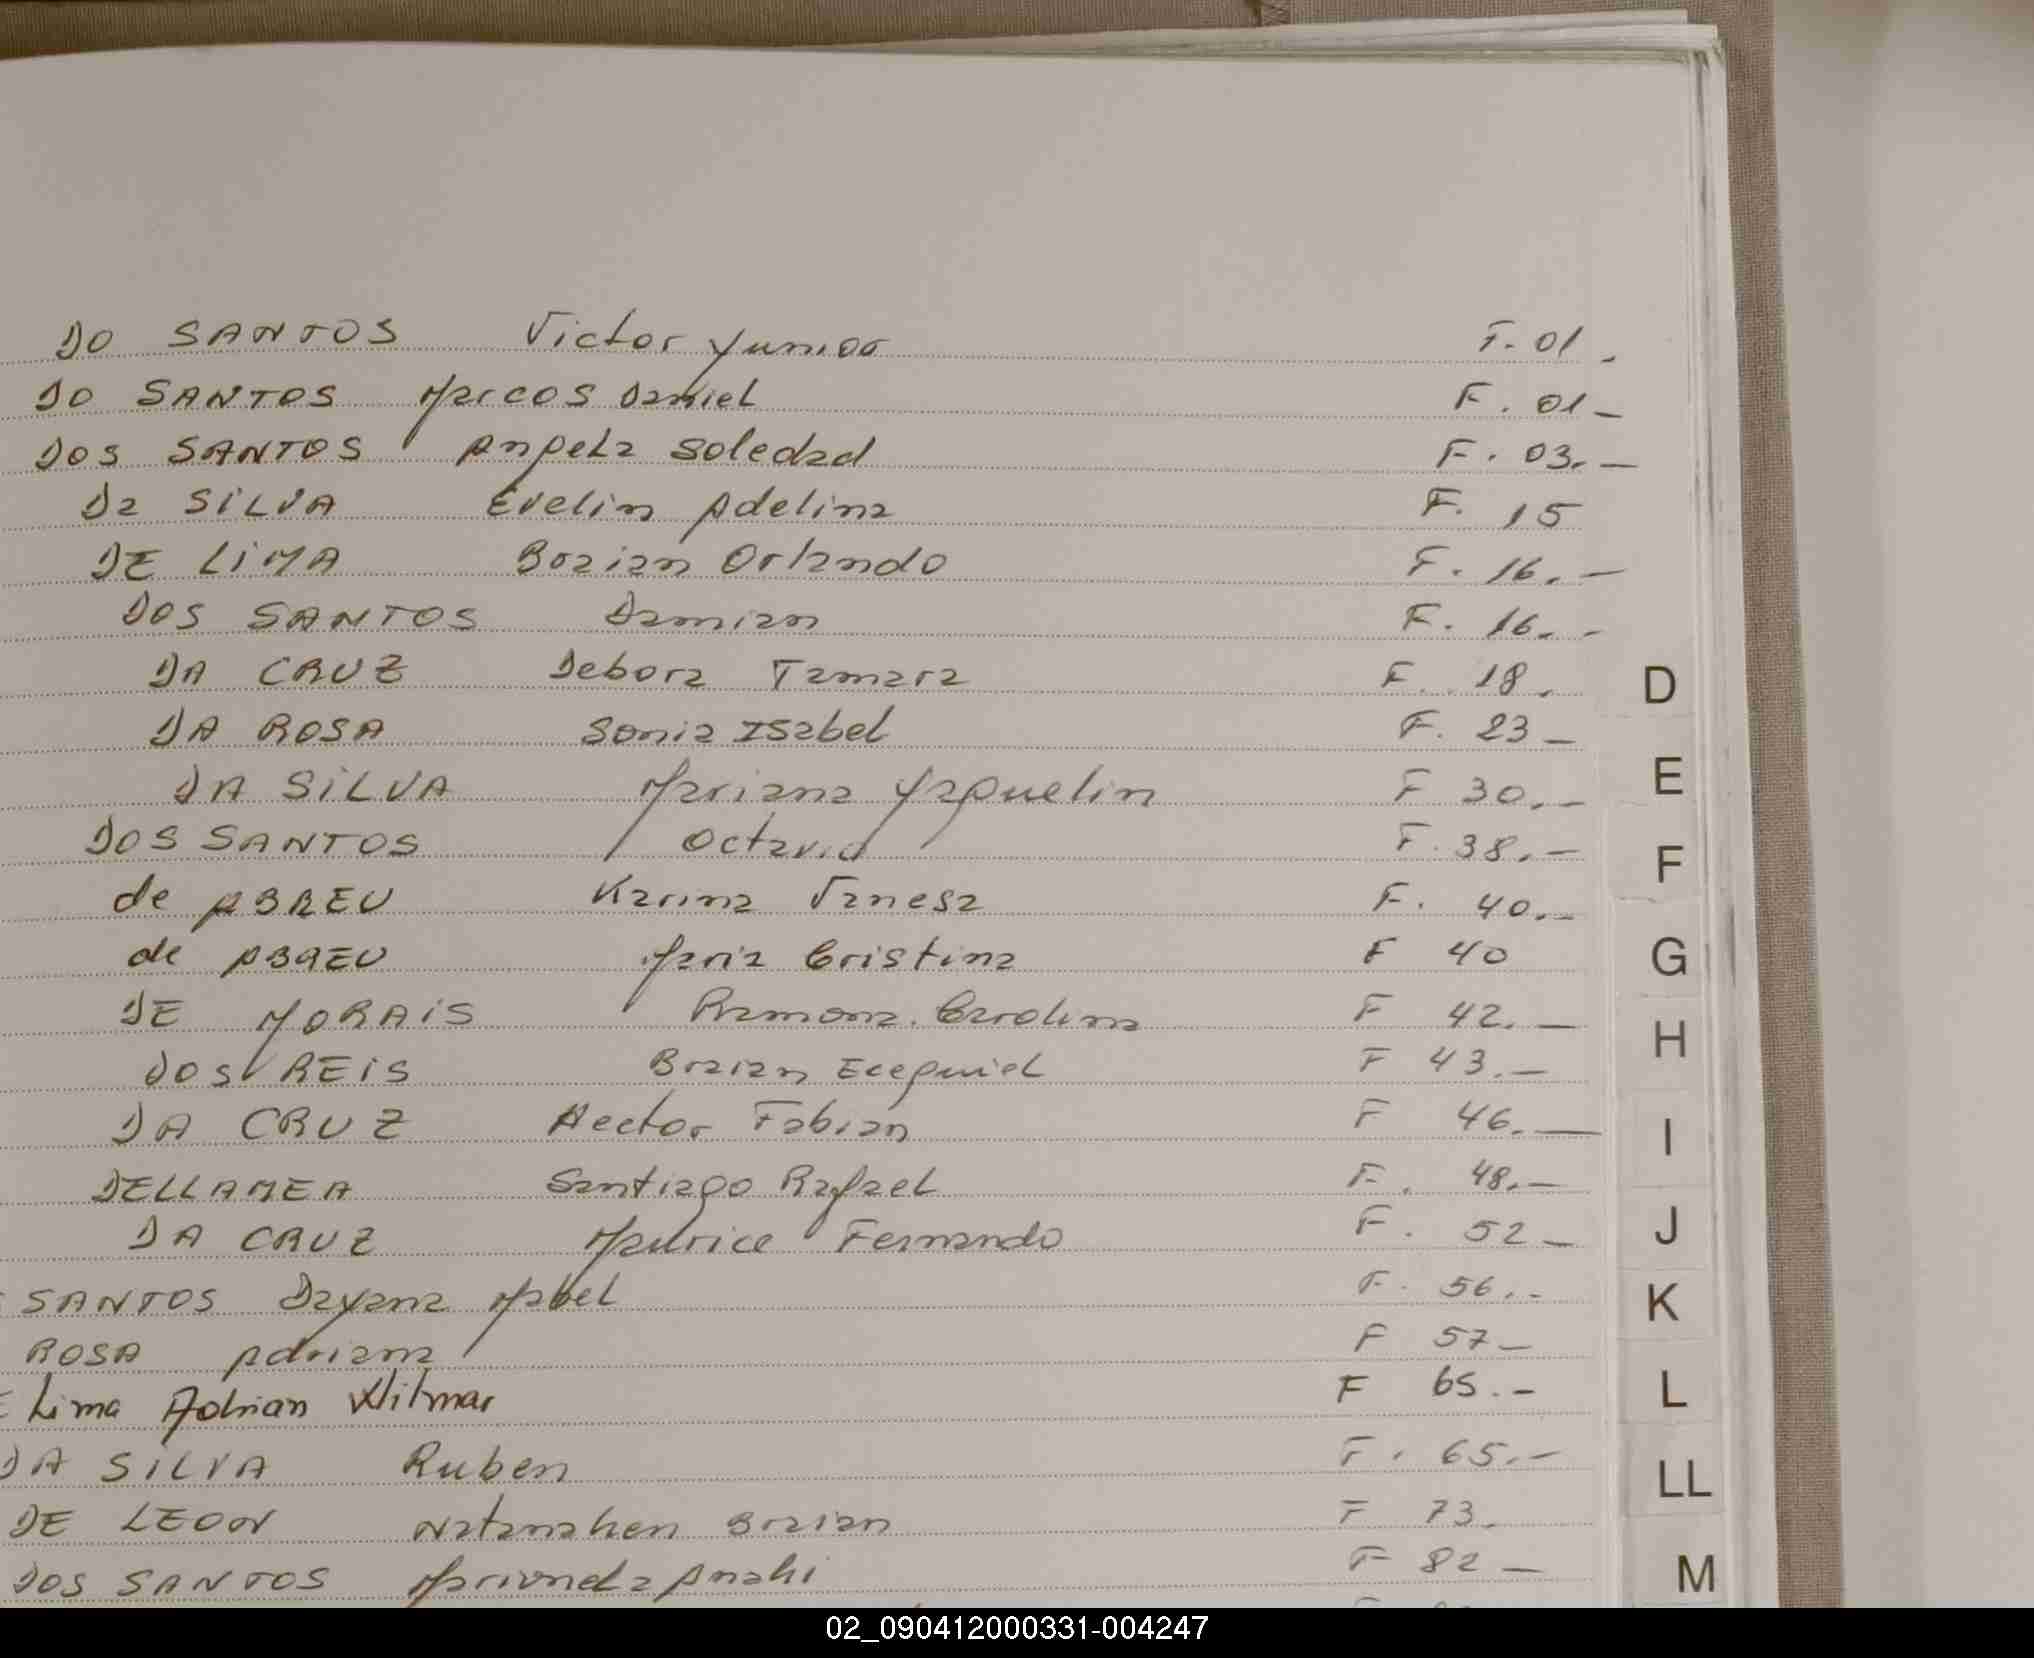 DO SANTOS Victor Yunior F. 01.
DO SANTOS Marcos Daniel F. 01-
DOS SANTOS Angela Soledad F. 03.-
Da SiLVA Evelin Adelina F. 15
DE LiMA Braian Orlando F. 16.-
DOS SANTOS Damian F. 16.-
DA CRUZ Debora Tamara F. 18.
DA ROSA Sonia Isabel F. 23-
DA SiLVA Mariana Yaquelin F 30.-
DOS SANTOS Octavio F. 38.-
de ABREU Karina Vanesa F. 40.-
de ABREU Maria Cristina F 40
DE MORAiS Ramona. Carolina F 42.-
DOS REiS Braian Ecequiel F 43.-
DA CRUZ Hector Fabian F 46.-
DELLAMEA Santiago Rafael F. 48.-
DA CRUZ Maurice Fernando F. 52-
SANTOS Dayana Mabel F. 56.-
ROSA Adriana F 57-
Lima Adrian Wilmar F 65.-
DA SiLVA Ruben F. 65.-
DE LEON Natanahen Braian F 73.
DOS SANTOS Marionela Anahi F 82-
D
E
F
G
H
I
J
K
L
LL
M
02_090412000331-004247